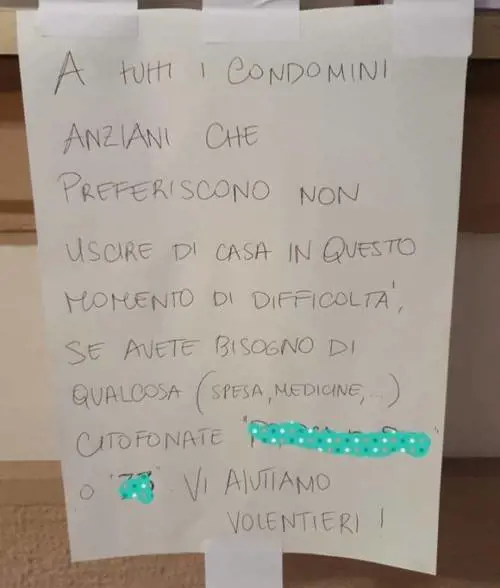 A TUTTI I CONDOMINI
ANZIANI CHE
PREFERISCONO NON
USCIRE DI CASA IN QUESTO
MOMENTO DI DIFFICOLTÀ,
SE AVETE BISOGNO DI
QUALCOSA (SPESA, MEDICINE,...)
CITOFONATE
O VI AIUTIAMO
VOLENTIERI!